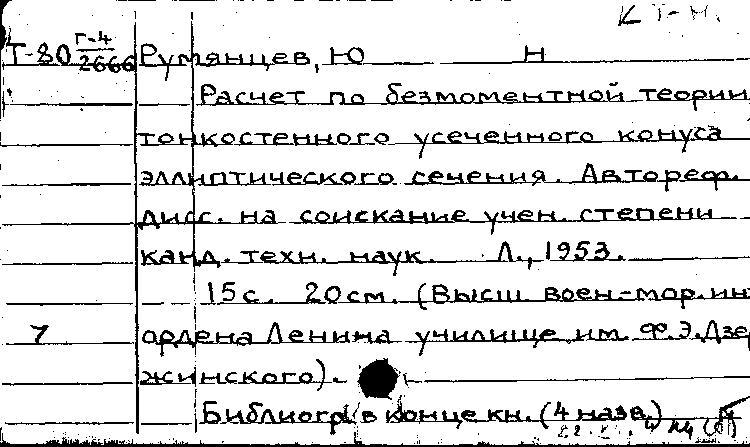 К Т-Н.
Т-80 Г-4
2666 Румянцев, Ю Н
Расчет по безмоментной теории
тонкостенного усеченного конуса
эллиптического сечения. Автореф.
дисс. на соискание учен. степени
канд. техн. наук. Л., 1953.
15 с. 20 см. (Высш. воен-мор. ин
7 ордена Ленина училище им. Ф.Э.Дзер
жинского).
Библиогр. в конце кн. (4 назв.)